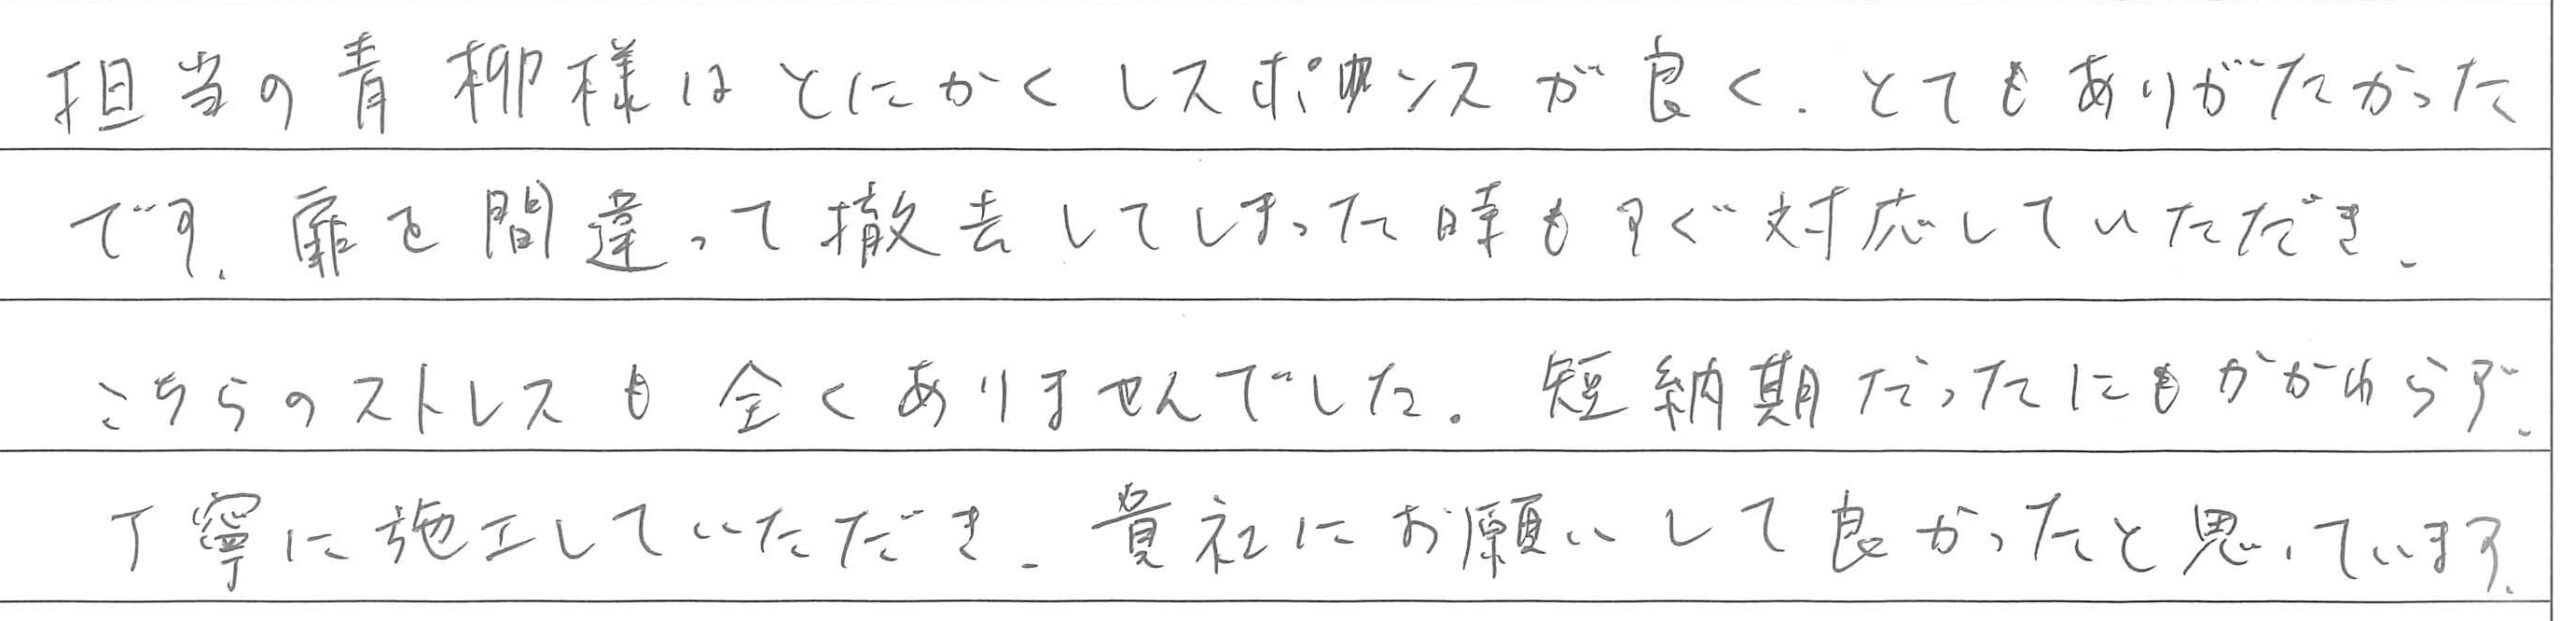 担当の青柳様はとにかくレスポンスが良く、とてもありがたかった
です。扉を間違って撤去してしまった時もすぐ対応していただき、
こちらのストレスも全くありませんでした。短納期だったにもかかわらず、
丁寧に施工していただき、貴社にお願いして良かったと思っています。